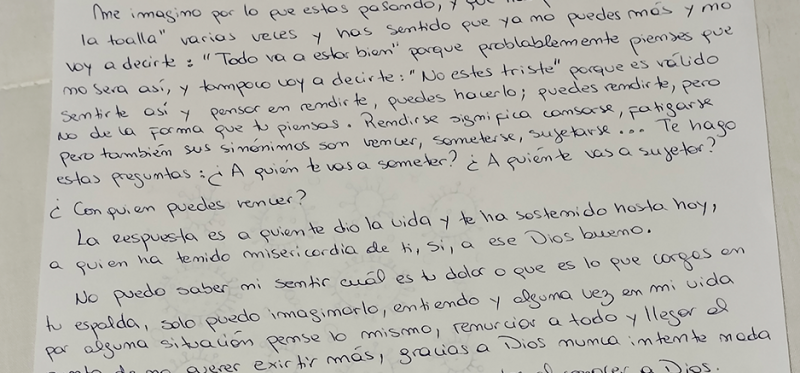 me imagino por lo que estas pasando, y que
la toalla" varias veces y has sentido que ya no puedes más y no
voy a decirte: "Todo va a estar bien" porque problablemente pienses que
no sera así, y tampoco voy a decirte: "No estes triste" porque es válido
sentirte así y pensar en rendirte, puedes hacerlo; puedes rendirte, pero
no de la forma que tu piensas. Rendirse significa cansarse, fatigarse
pero también sus sinónimos son vencer, someterse, sujetarse... Te hago
estas preguntas: ¿A quién te vas a someter? ¿A quién te vas a sujetar?
¿Con quien puedes vencer?
La respuesta es a quien te dio la vida y te ha sostenido hasta hoy,
a quien ha tenido misericordia de ti, si, a ese Dios bueno.
No puedo saber mi sentir cuál es tu dolor o que es lo que cargas en
tu espalda, solo puedo imaginarlo, entiendo y alguna vez en mi vida
por alguna situación pense lo mismo, renunciar a todo y llegar al
de no querer existir más, gracias a Dios nunca intente nada
a Dios.